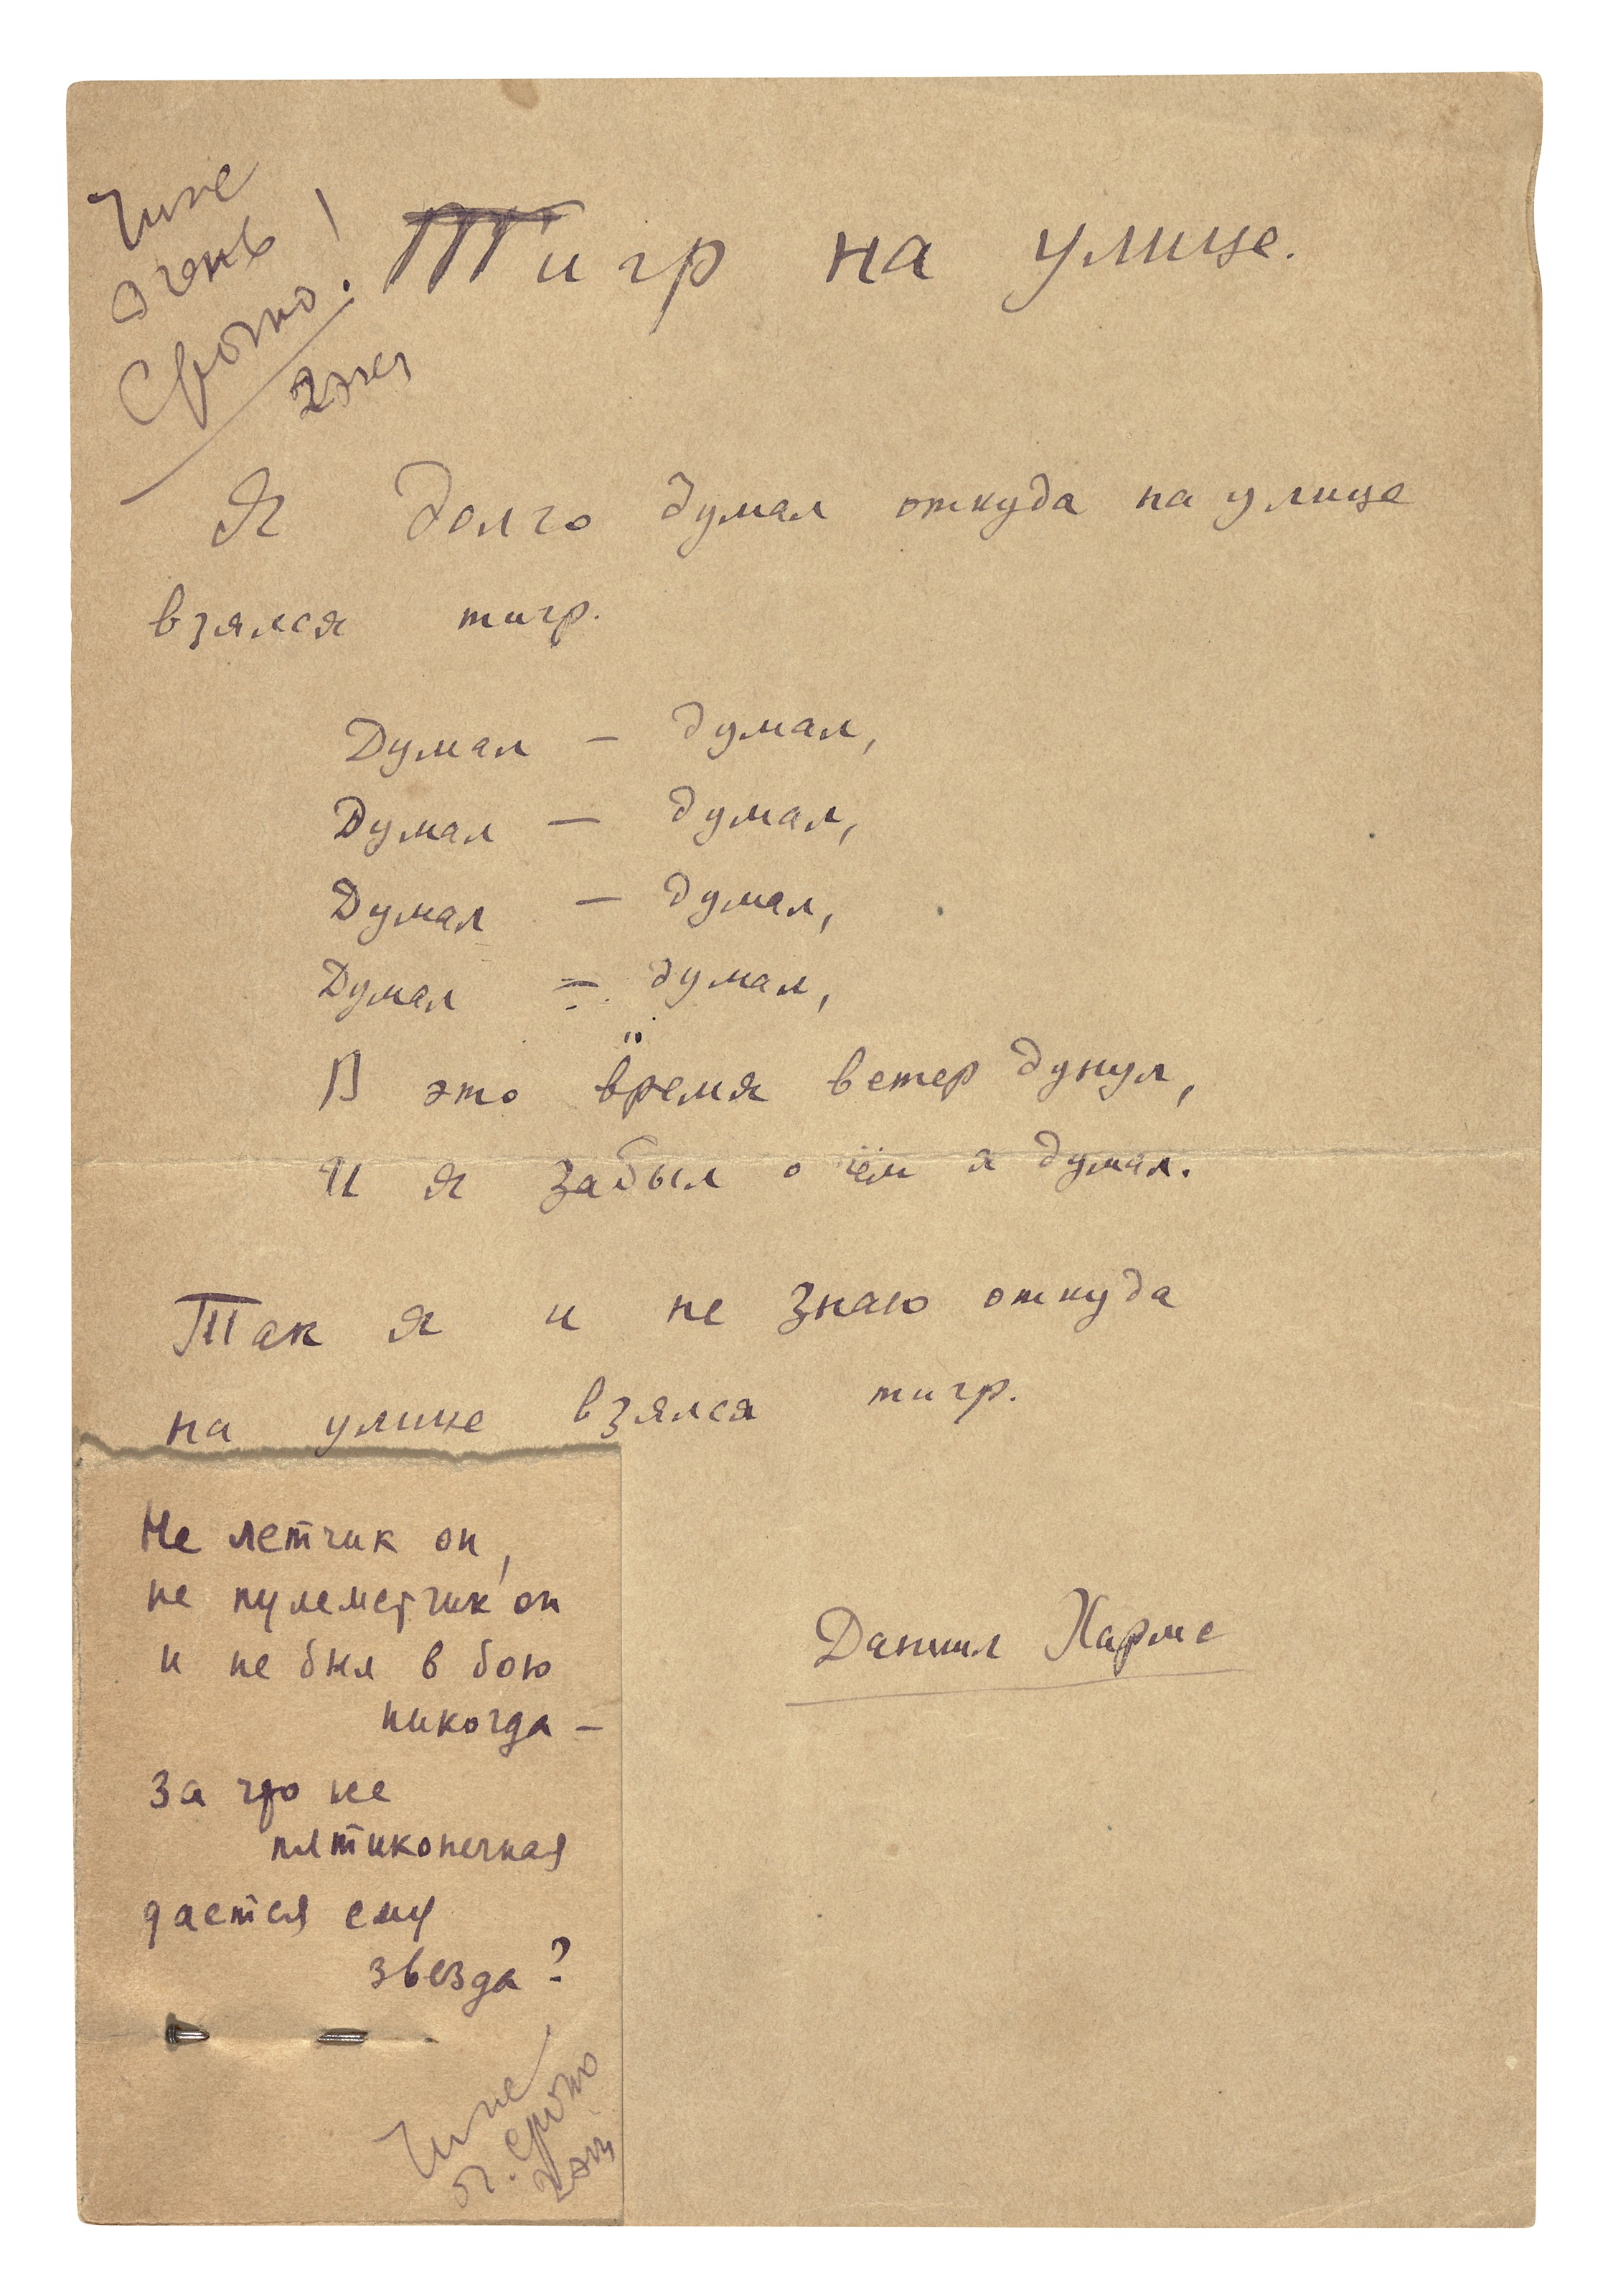 очень
Срочно!
2 экз
Тигр на улице.
Я долго думал откуда на улице
взялся тигр.
Думал – думал,
Думал – думал,
Думал – думал,
Думал – думал,
В это время ветер дунул,
И я забыл о чём я думал.
Так я и не знаю откуда
на улице взялся тигр.
Даниил Хармс
Не летчик он,
не пулеметчик он
и не был в бою
никогда –
За что же
пятиконечная
дается ему
звезда?
срочно
2 экз